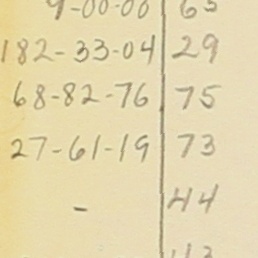 9-00-00 65
182-33-04 29
68-82-76 75
27-61-19 73
- 44